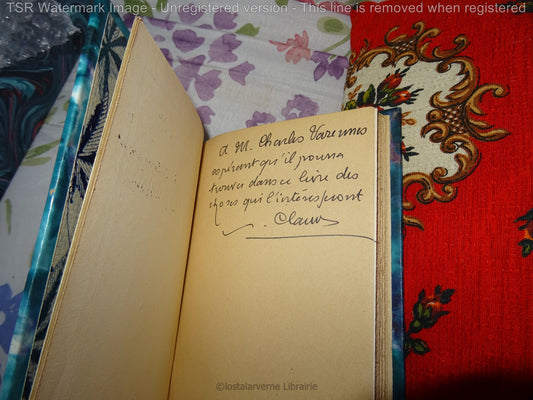 TSR Watermark Image - Unregistered version - This line is removed when registered
A M. Charles Varennes
espérant qu'il pourra
trouver dans ce livre des
choses qui l'intéresseront
©lostalarverne Librairie